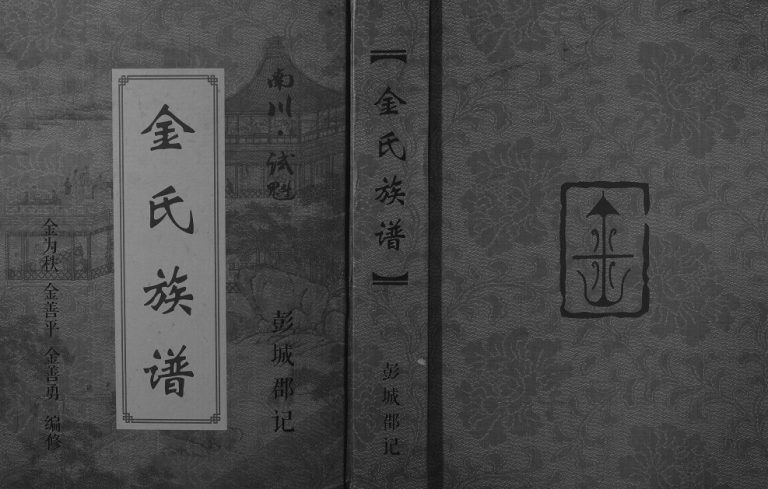 南川·试魁
金氏族谱
彭城郡记
金为秩 金善平 金善勇 编修
【金氏族谱】
彭城郡记